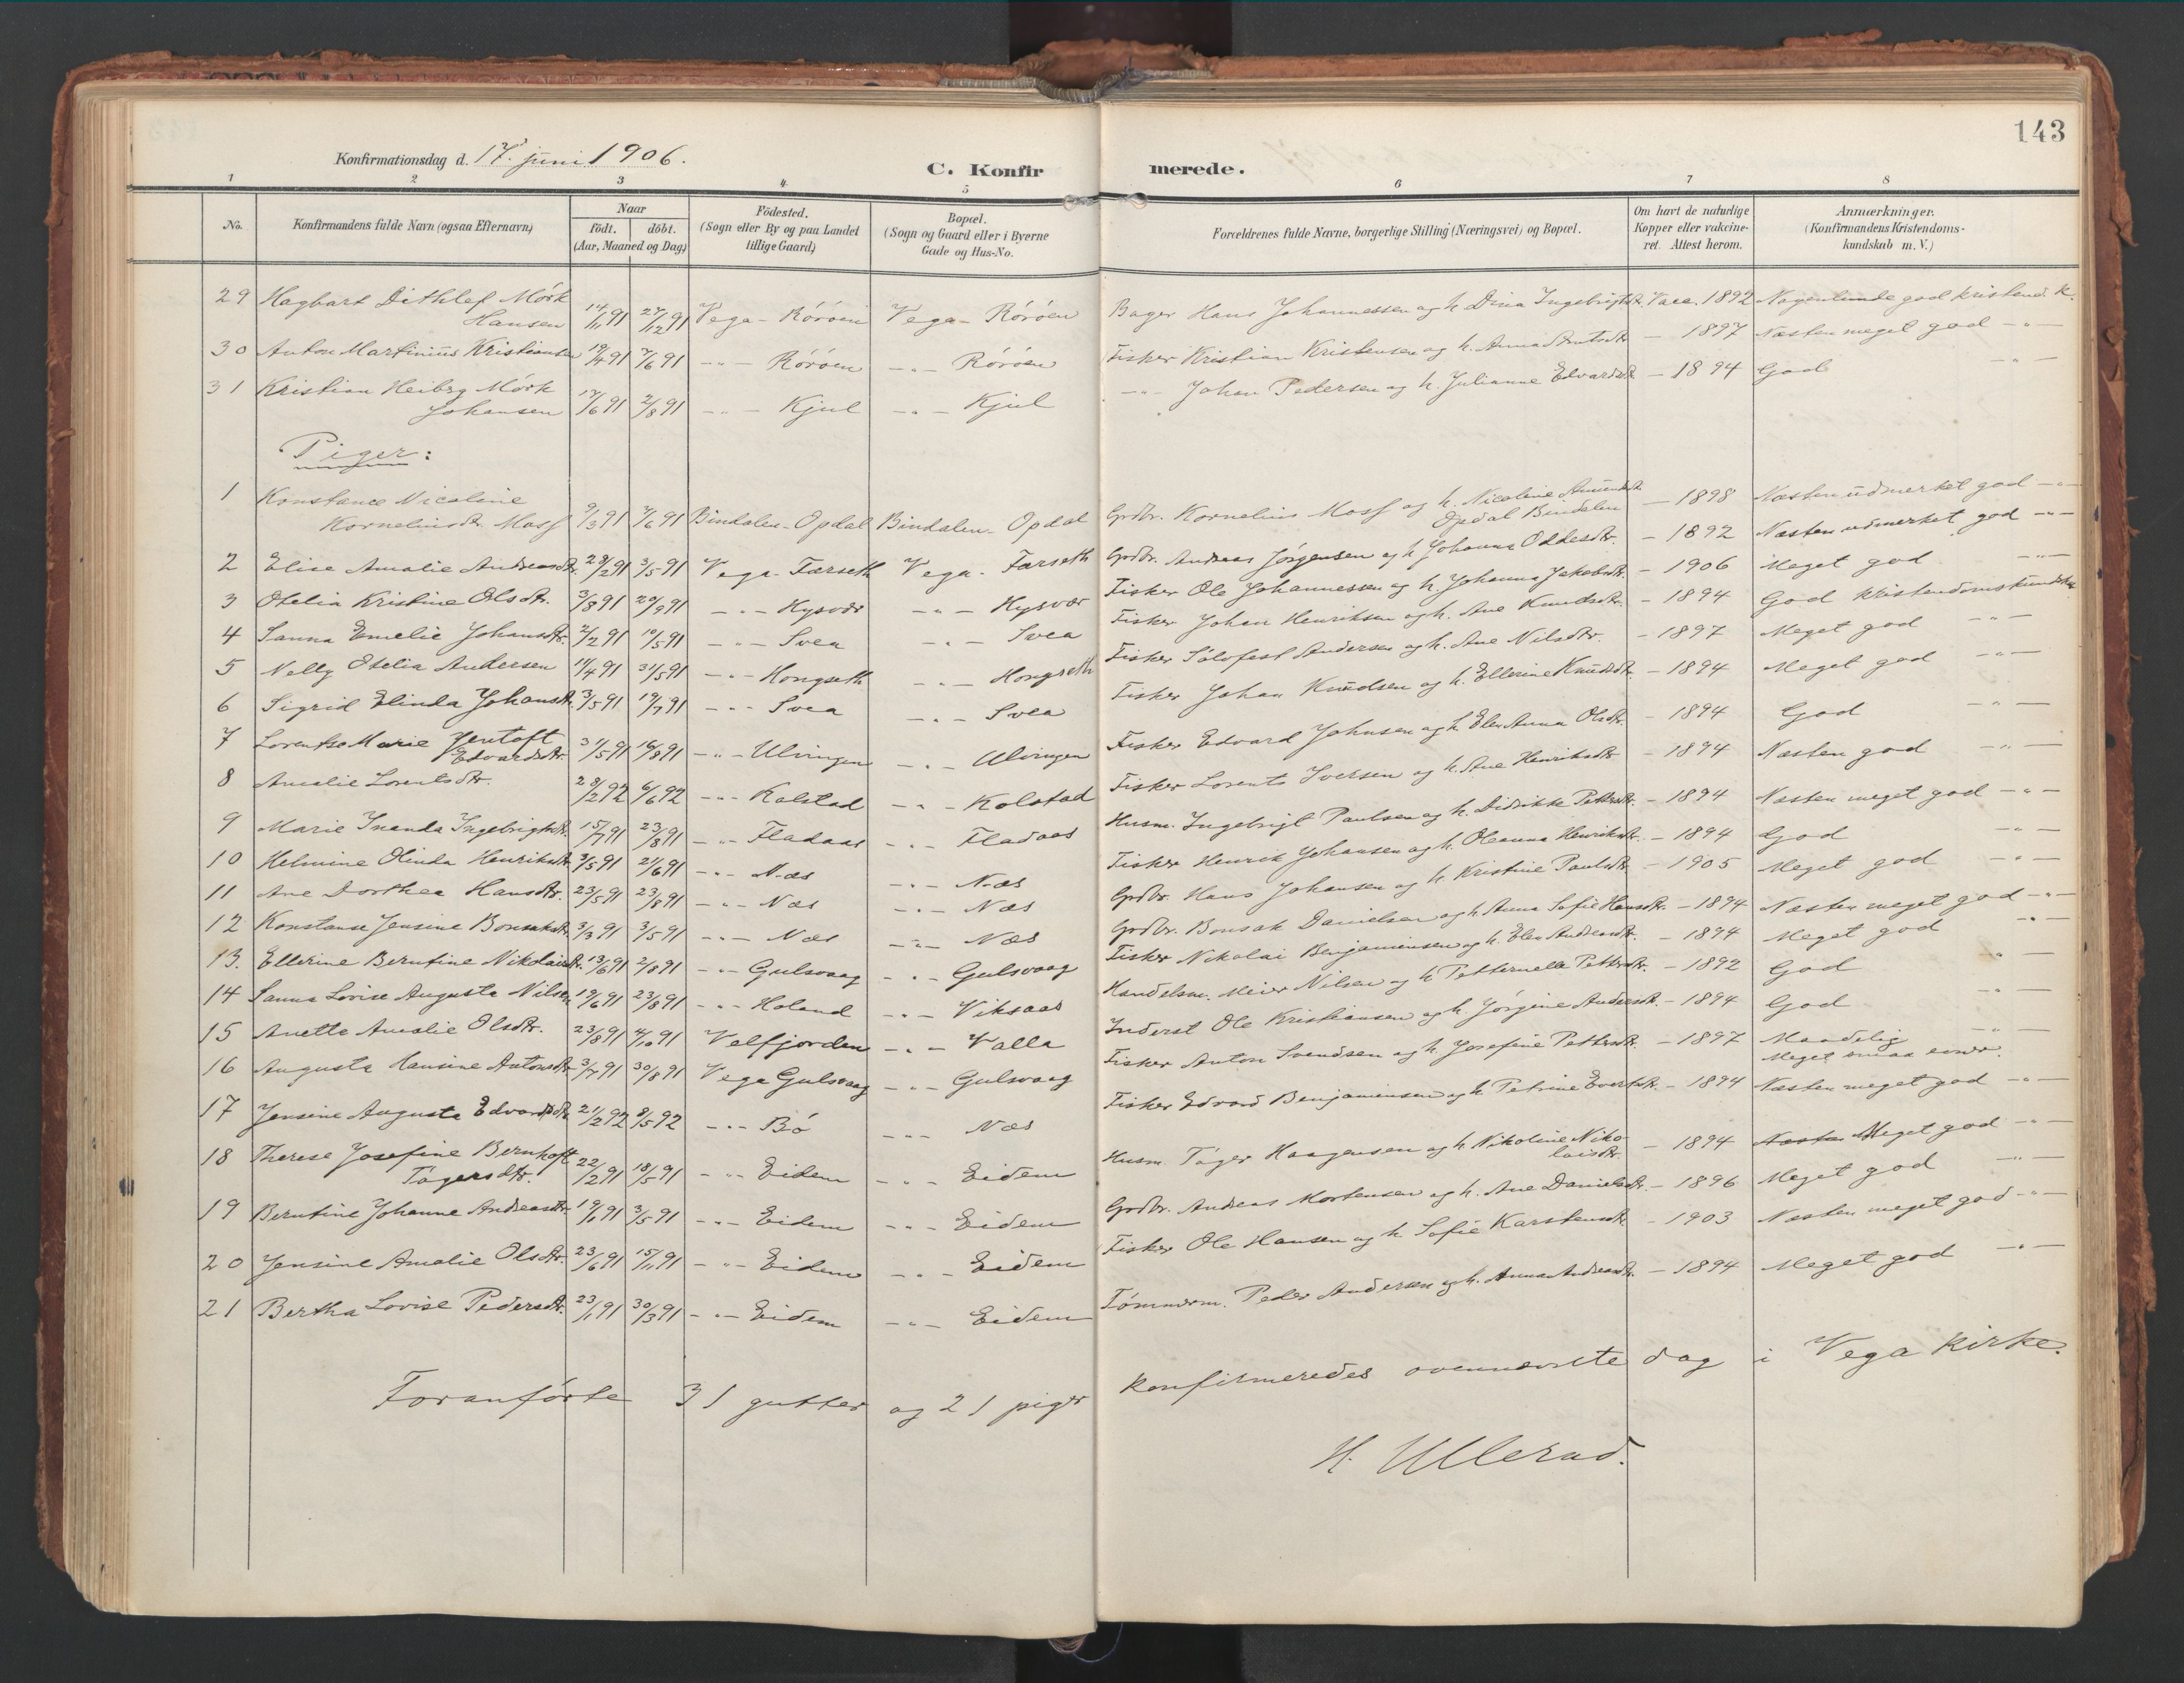 143
Konfirmationsdag d. 17. juni 1906.
C. Konfirmerede.
1 2 3 4. 5 6 7 8
No. Konfirmandens fulde Navn (ogsaa Efternavn) Naar födt. döbt. (Aar, Maaned og Dag) Födested. (Sogn eller By og paa Landet tillige Gaard) Bopæl. (Sogn og Gaard eller i Byerne Gade og Hus-No. Forældrenes fulde Navne, borgerlige Stilling (Næringsvei) og Bopæl. Om havt de naturlige Kopper eller vakcineret. Attest herom. Anmærkninger. (Konfirmandens Kristendomskundskab m. V.)
29 Hagbart Dithlef Mörk Hansen 14/11 91 27/12 91 Vega - Röröen Vega - Röröen Bager Hans Johannessen og h. Dina Ingebrigtsdtr. Vacc. 1892 Nogenlunde god kristend. k.
30 Anton Martinius Kristiansen 19/4 91 7/6 91 -"- Röröen -"- Röröen Fisker Kristian Kristensen og h. Anna - 1897 Næsten meget god -"-
31 Kristian Heibrg Mörk Johansen 17/6 91 2/8 91 -"- Kjul -"- Kjul -"- Johan Pedersen og h. Julianne Edvardsdtr. - 1894 God -"-
Piger:
1 Konstance Nicoline Korneliusdtr. Moss 9/3 91 7/6 91 Bindalen - Opdal Bindalen - Opdal Grdbr. Kornelius Moss og h. Nicoline Opdal Bindalen - 1898 Næsten udmerket god -"-
2 Elise Amalie Andreasdtr. 28/2 91 3/5 91 Vega - Færseth Vega - Færseth Grdbr. Andreas Jörgensen og h. Johanna Oddesdtr. - 1892 Næsten udmerket god -"-
3 Otelia Kristine Olsdtr. 3/8 91 20/9 91 -"- Hysvær -"- Hysvær Fisker Ole Johannessen og h. Johanna Jakobsdtr. - 1906 Meget god -"-
4 Sanna Emelie Johansdtr. 2/2 91 10/5 91 -"- Svea -"- Svea Fisker Johan Henriksen og h. Ane Knudsdtr. - 1894 God kristendomskundskab
5 Nelly Otelia Andersen 11/4 91 31/5 91 -"- Hongseth -"- Hongseth Fisker Sölofest Andersen og h. Ane Nilsdtr. - 1897 Meget god -"-
6 Sigrid Elinda Johansdtr. 3/5 91 19/7 91 -"- Svea -"- Svea Fisker Johan Knudsen og h. Ellerine Knudsdtr. - 1894 Meget god -"-
7 Lorentse Marie Jentoft Edvardsdtr. 31/5 91 16/8 91 -"- Ulvingen -"- Ulvingen Fisker Edvard Johnsen og h. Elen Anna Olsdtr. - 1894 God -"-
8 Amalie Lorentsdtr. 28/2 92 6/6 92 -"- Kolstad -"- Kolstad Fisker Lorents Iversen og h. Ane Henriksdtr. - 1894 Næsten god -"-
9 Marie Inanda Ingebrigtsdtr. 15/7 91 23/8 91 -"- Fladaas -"- Fladaas Husm. Ingebrigt Paulsen og h. Didrikke Pettersdtr. - 1894 Næsten meget god -"-
10 Helmine Olinda Henriksdtr. 3/5 91 21/6 91 -"- Næs -"- Næs Fisker Henrik Johansen og h. Oleanna Henriksdtr. - 1894 God -"-
11 Ane Dorthea Hansdtr. 23/5 91 23/8 91 -"- Næs -"- Næs Grdbr. Hans Johansen og h. Kristine Paulsdtr. - 1905 Meget god -"-
12 Konstanse Jensine Bonsaksdtr. 3/3 91 3/5 91 -"- Næs -"- Næs Grdbr. Bonsak Danielsen og h. Anna Sofie Hansdtr. - 1894 Næsten meget god -"-
13. Ellerine Berntine Nikolaisdtr. 13/6 91 2/8 91 -"- Gulsvaag -"- Gulsvaag Fisker Nikolai Benjaminsen og h. Elen Andreasdtr. - 1894 Meget god -"-
14 Sanna Lovise Augusta Nilsen 19/6 91 23/8 91 -"- Holand -"- Viksaas Handelsm. Meier Nilsen og h. Petternella Pettersdtr. - 1892 God "-
15 Anette Amalie Olsdtr. 23/8 91 4/10 91 Velfjorden -"- Valla Inderst Ole Kristiansen og h. Jörgine Andersdtr. - 1894 God -"-
16 Augusta Hansine Antonsdtr. 3/7 91 30/8 91 Vega Gulsvaag -"- Gulsvaag Fisker Anton Svendsen og h. Josefine Pettersdtr. - 1897 Maadelig -"- Meget smaa evner.
17 Jensine Augusta Edvardsdtr. 21/2 92 8/5 92 -"- Bö -"- Næs Fisker Edvard Benjaminsen og h. Petrine Evertsdtr. - 1894 Næsten meget god -"-
18 Therese Josefine Bernhoft Tögersdtr. 22/2 91 18/5 91 -"- Eidem -"- Eidem Husm. Töger Haagensen og h. Nikoline Nikolaisdtr. - 1894 Næsten Meget god -"-
19 Berntine Johanne Andreasdtr. 19/1 91 3/5 91 -"- Eidem -"- Eidem Grdbr. Andreas Mortensen og h. Ane Danielsdtr. - 1896 Meget god -"-
20 Jensine Amalie Olsdtr. 23/6 91 15/11 91 -"- Eidem -"- Eidem Fisker Ole Hansen og h. Sofie Karstensdtr. - 1903 Næsten meget god -"-
21 Bertha Lovise Pedersdtr. 23/1 91 30/3 91 -"- Eidem -"- Eidem Tömmerm. Peder Andersen og h. Anna Andreasdtr. - 1894 Meget god -"-
Foranförte 31 gutter og 21 piger konfirmeredes ovennævnte dag i Vega kirke.
H. Ullerud.